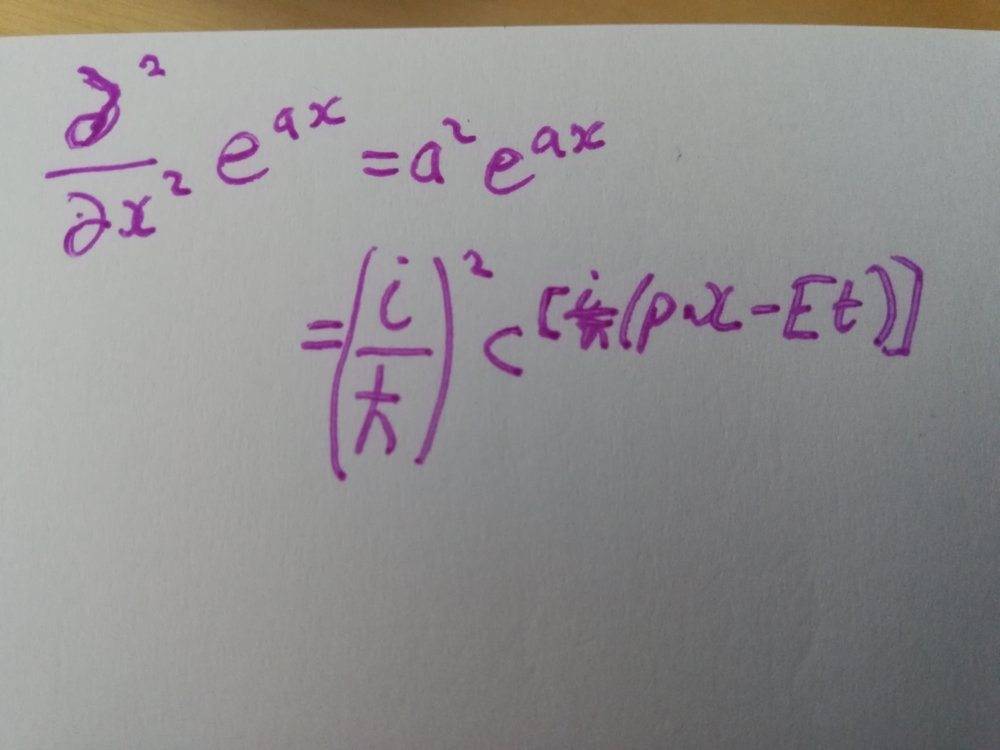 ∂²/∂x² e^{ax} = a² e^{ax}
= (i/ħ)² e^{[i/ħ (px - Et)]}